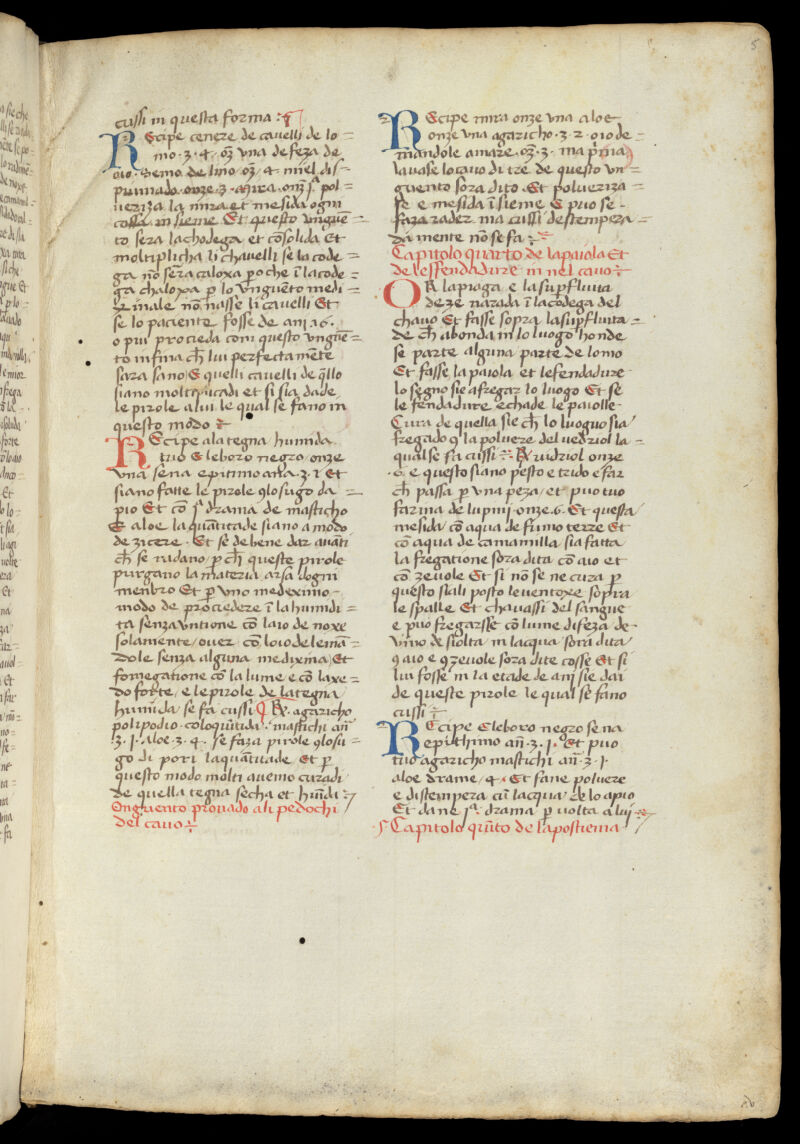 cussi in questa forma :¶
Recipe cenere de cauelli de lo =
mo · 3 · 4 · oz vna defeza de
oio · Semo de lino · oz · 4 · miel dis=
pumado · onze · 3 · Mira · onz · pol=
ueriza la mira et mesida ogni
cossa in sieme Et questo vnguē=
to sera la chodega et cōsolida Et
moltiplicha li chauelli se la code=
ga nō sera caloxa pero che ī la code=
ga chaloxa p lo vnguēto medi=
xinale nō nasse li cauelli Et
se lo paciente fosse de ani 26 ·
o piu procieda com questo vnguē=
to infina ch lui perfectamēte
sara sano E quelli cauelli de qllo
siano molto
le pirole a lui le qual se fano in
questo modo
Recipe a la tegna humida
tuo Eleboro negro onze
vna sena epitimo ana · 3 · 1 Et
siano fatte le pirole 9lo sugo da
pio Et cō drama de masticho
E aloe la quātitade siano a modo
de zicere · Et se debene dar auāti
ch se radano p ch queste pirole
purgano la materia arsa dogni
menbro Et p vno medeximo
modo de procedere ī la humidi=
ta senza vntione cō laio de noxe
solamente ouer cō loio de le mā=
dole senza alguna medixina Et
fomegatione cō la lume e cō laxe=
do forte, e le pirole de la tegna
humida se fa cussi ¶ R. agaricho
polipodio coloqūtida · mastichi añ
· 3 · 1 · aloe · 3 · 4 · se faza pirole 9lo su=
go di pori la quātitade Et p
questo modo molti auemo curadi
de quella tegna secha et hūida
Onguento prouado a li pedochi
del cauo
Recipe mira onze vna aloe
onze vna agaricho · 3 · 2 · oio de
mandole amare · oz · 3 · ma prima
lauase lo cauo di tre de questo vn=
guento sora dito Et polueriza=
se e mesida īsieme E puo se
faza rader ma cussi destempera=
da mente nō se fa
Capitolo quarto de la paiola Et
de leffendadure in nel cauo
Ora la piaga e la supfluita
de ze narada ī la codega del
chauo Et fasse sopra la supfluita=
de ch abonda in lo luogo honde
se parte alguna parte de lomo
Et fasse la paiola et le fendadure
lo segno sie a fregar lo luogo Et se
le fendadure echade le paiolle
Cura de quella sie ch lo luoguo sia
fregado 9 la poluere del vedriol la=
qual se fa cussi R vidriol onze
· 6 · e questo siano pesto e trido e far
ch passa p vna peza, et puo tuo
farina de lupini onze · 6 · Et questa
mesida cō aqua de fumo terre Et
con aqua de camamilla sia fatta
la fregatione sora dita cō aio et
cō zeuole Et si nō se ne cura p
questo siali posto le ventoxe sopra
le spalle Et chauassi del sangue
e puo fregarsse cō lume di feza de
vino destolta in lacqua sora dita
9 aio e 9 zeuole sora dite cosse Et si
lui fosse in la etade de ani sie dai
de queste pirole le qual se fano
cussi
Recipe Eleboro negro sena
epithimo añ · 3 · 1 · Et puo
tuo agaricho mastichi añ · 3 · 1
aloe drame · 4 · Et fane poluere
e distempera cū lacqua de lo apio
Et da ne drama p volta a lui
Capitolo qūto de la postiema